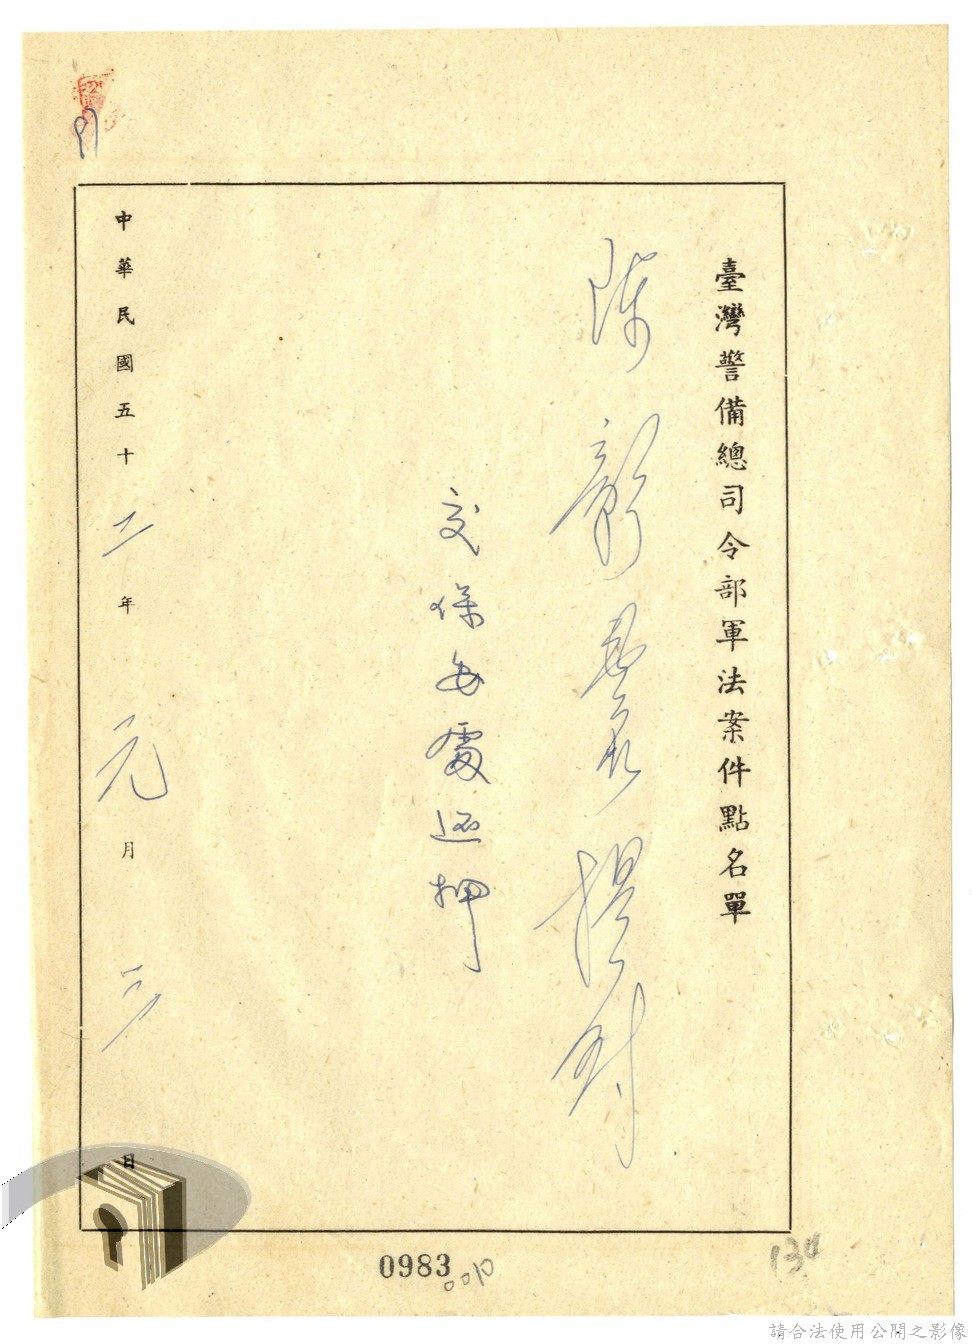 臺灣警備總司令部軍法案件點名單
陳
交保安處還押
中華民國五十二年元月三日
0983
0010
134
請合法使用公開之影像